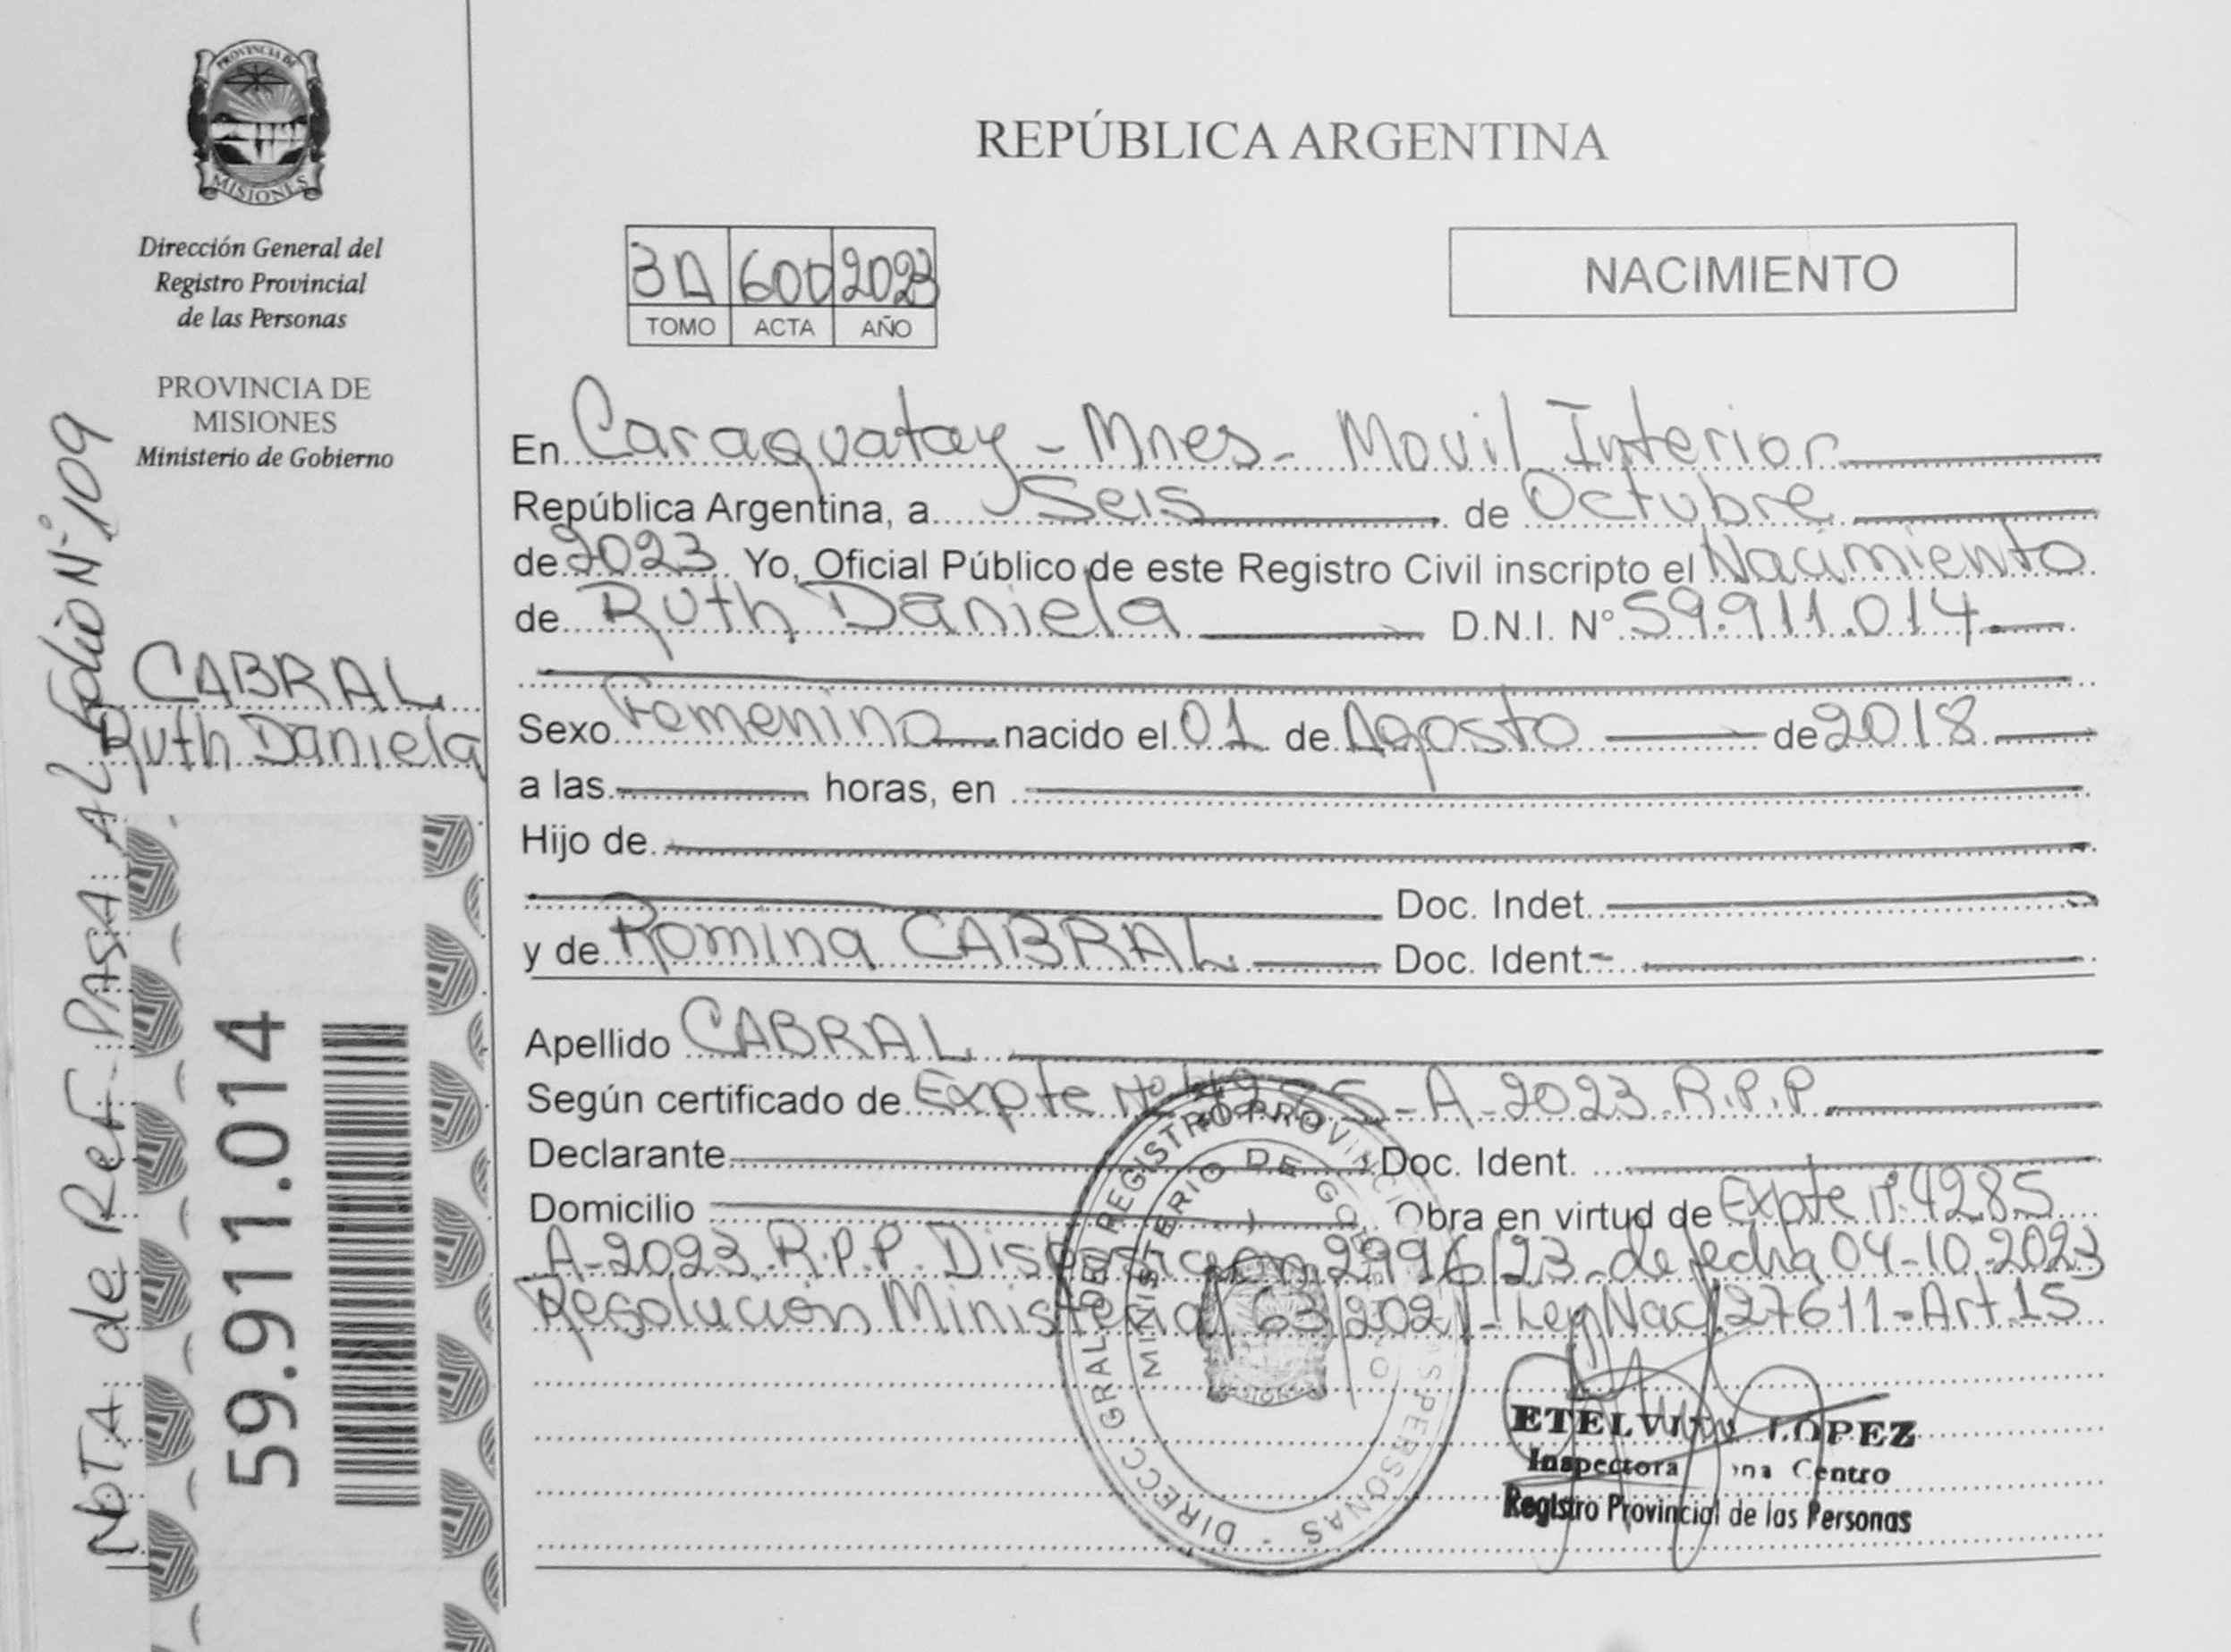 PROVINCIA DE
MISIONES
Dirección General del
Registro Provincial
de las Personas
PROVINCIA DE
MISIONES
Ministerio de Gobierno
CABRAL
Ruth Daniela
59.911.014
NOTA de Ref. PASA AL Folio N° 109
REPÚBLICA ARGENTINA
3A 600 2023
TOMO ACTA AÑO
NACIMIENTO
En Caraguatay - Mnes - Movil Interior
República Argentina, a Seis de Octubre
de 2023 Yo, Oficial Público de este Registro Civil inscripto el Nacimiento
de Ruth Daniela D.N.I. N° 59.911.014
Sexo Femenino nacido el 01 de Agosto de 2018
a las horas, en
Hijo de
Doc. Indet.
y de Romina CABRAL Doc. Ident.
Apellido CABRAL
Según certificado de Expte N° - A - 2023 R.P.P.
Declarante Doc. Ident.
Domicilio Obra en virtud de Expte N° 4285
A-2023 R.P.P. Disposicion 2996/23 de fecha 04-10-2023
Resolución Ministerial 63/2021 - Ley Nac 27611 - Art 15
DIRECC. GRAL. DEL REGISTRO PROVINCIAL DE LAS PERSONAS
MINISTERIO DE GOBIERNO
ETELVINA LOPEZ
Inspectora Zona Centro
Registro Provincial de las Personas